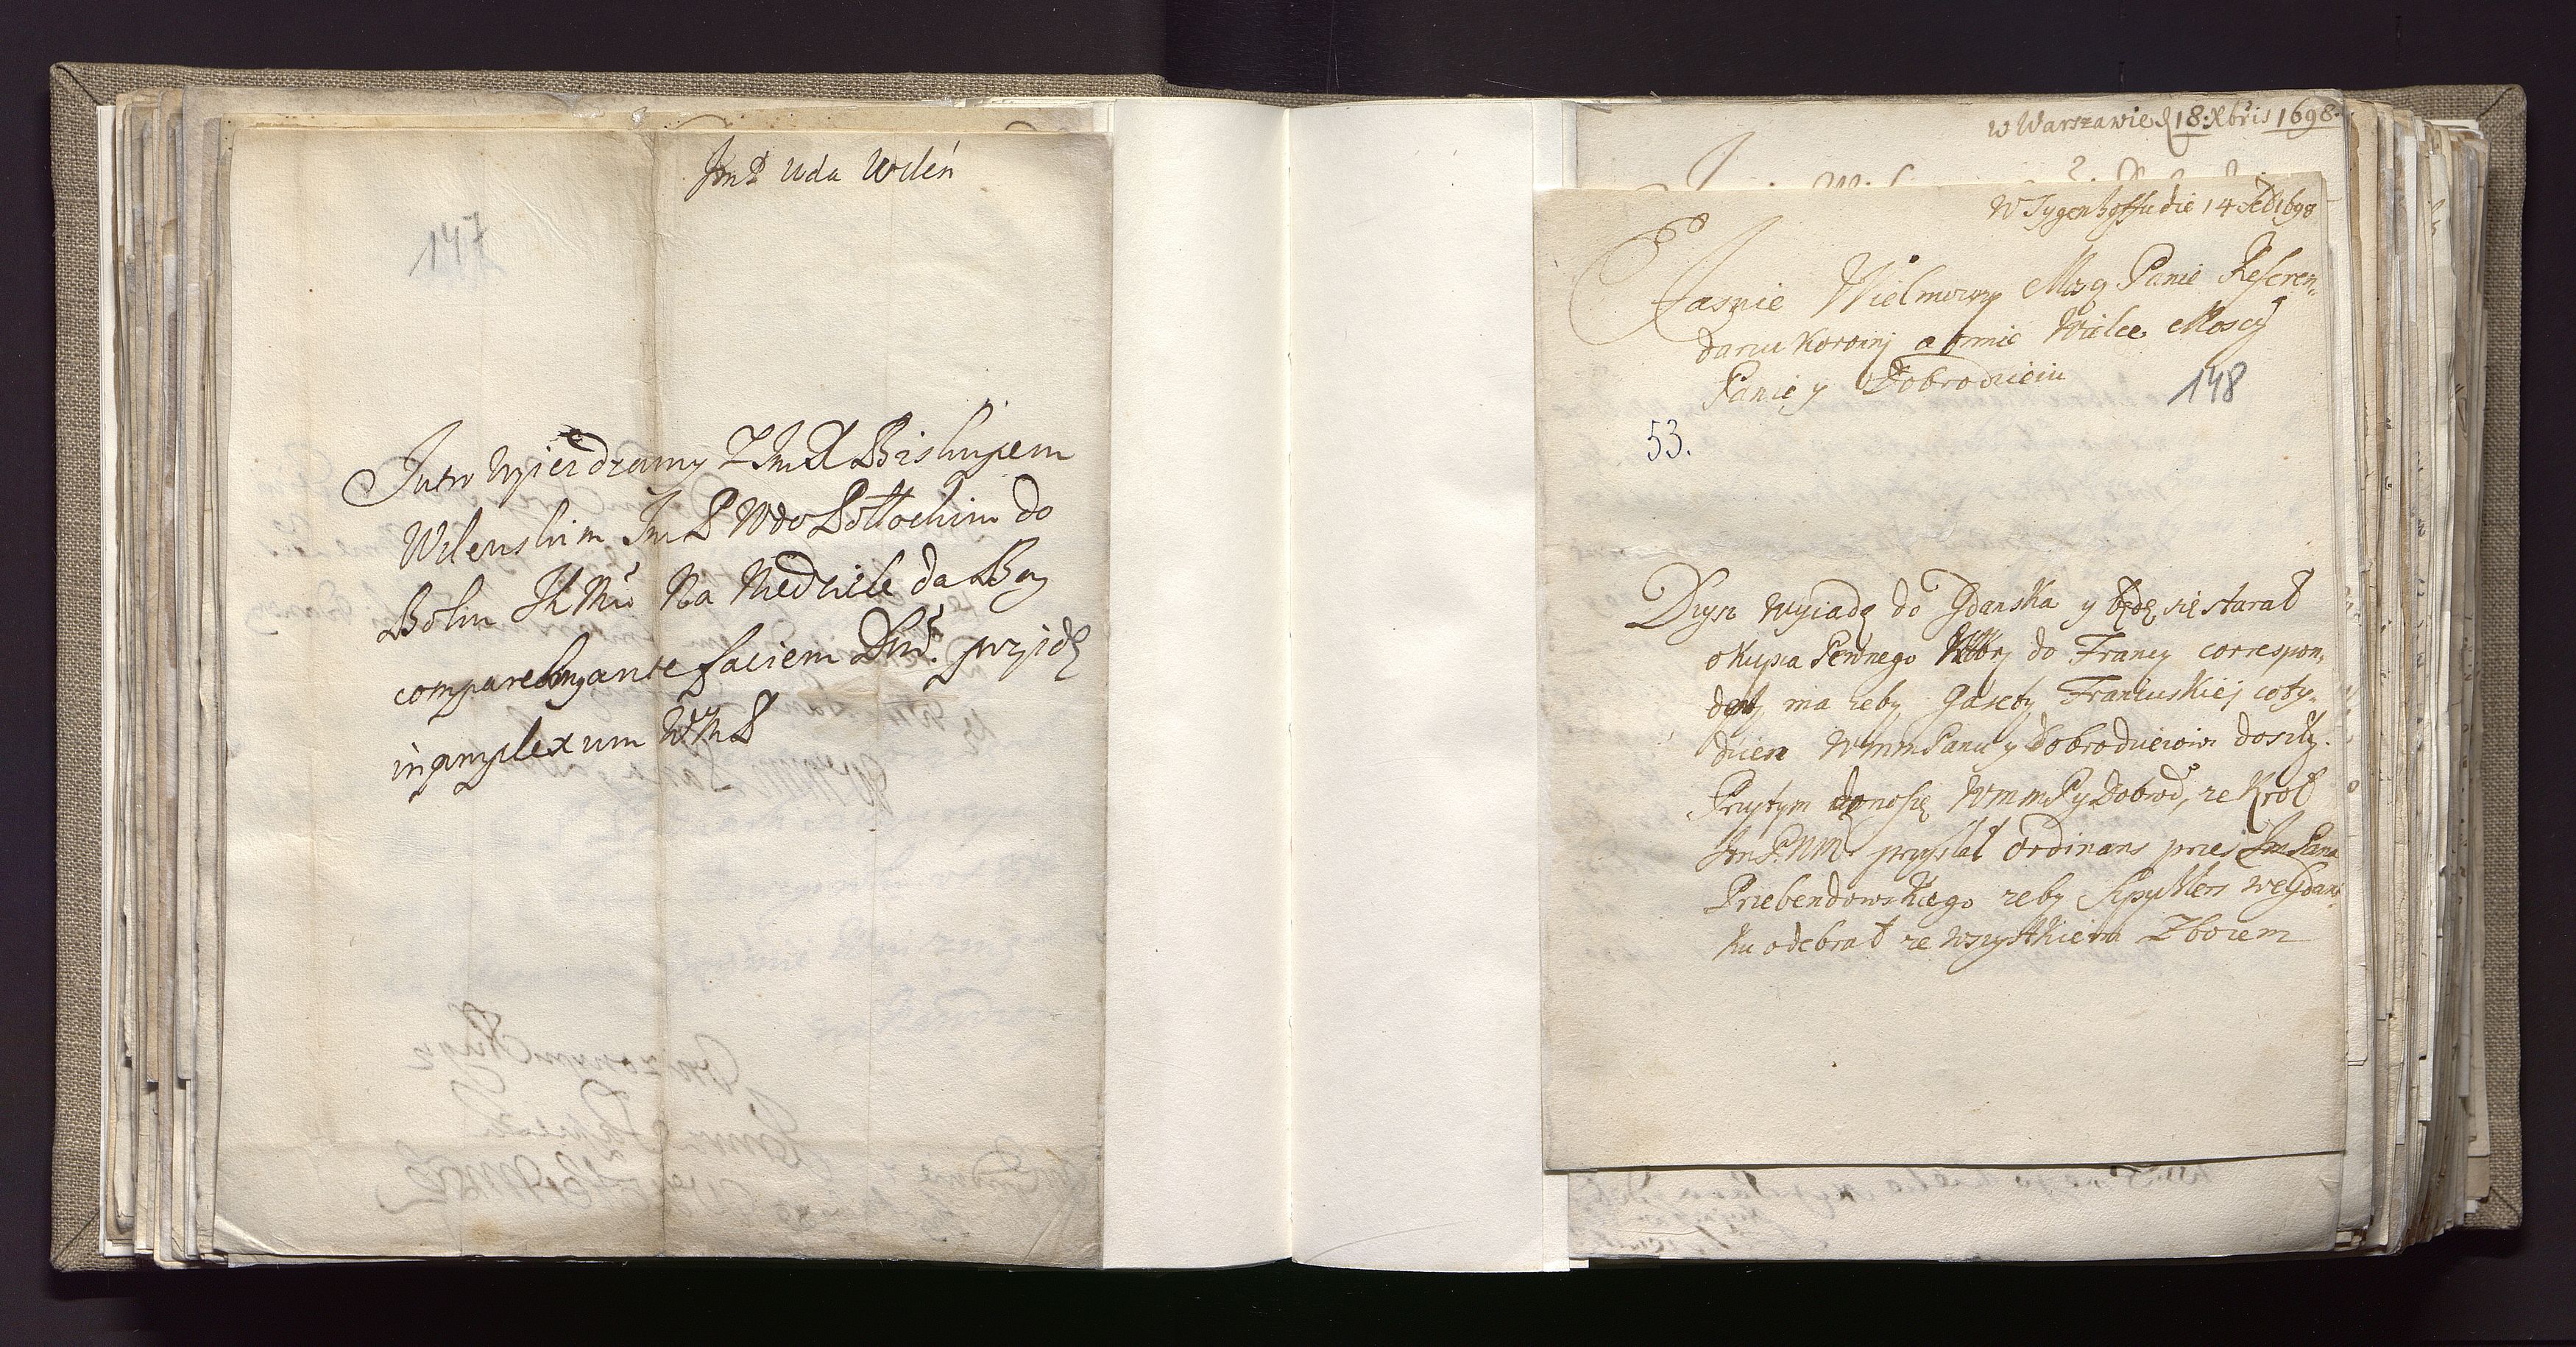 JmP Wda Wileń
147
Jutro Wyiezdzamy Z Jm X Biskupem
Wilenskim Jm P Wdo Połłockim do
Boku JK Mci Na Niedziele da Bog
ante faciem Dni. przyidę
in amplexum WM P
w Warszawie d 18 Xbris 1698.
W Tygenhoffu die 14 1698
Jasnie Wielmozny Mosq Panie Referen,
darzu Koronny a Mnie Wielce Mosci
Panie y Dobrodzieiu
148
53.
Dzys Wyiadę do Gdanska y będę się starał
o Kupca Pewnego Ktory do Francy correspon,
ma zeby Gasety Francuskiej coty,
dzien WMMPanu y Dobrodzieiowi
Przytym donoszę WMMP y Dobrod, ze Krol
Jm P. NM przysłał Ordinans przez Jm Pana
Przebendowskiego zeby we Gdans,
ku odebrał ze wszystkiem Zbozem